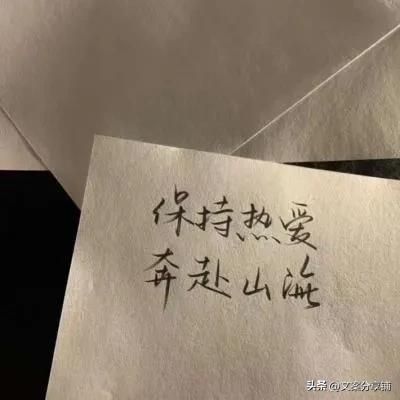 保持热爱
奔赴山海
头条 @文案分享铺